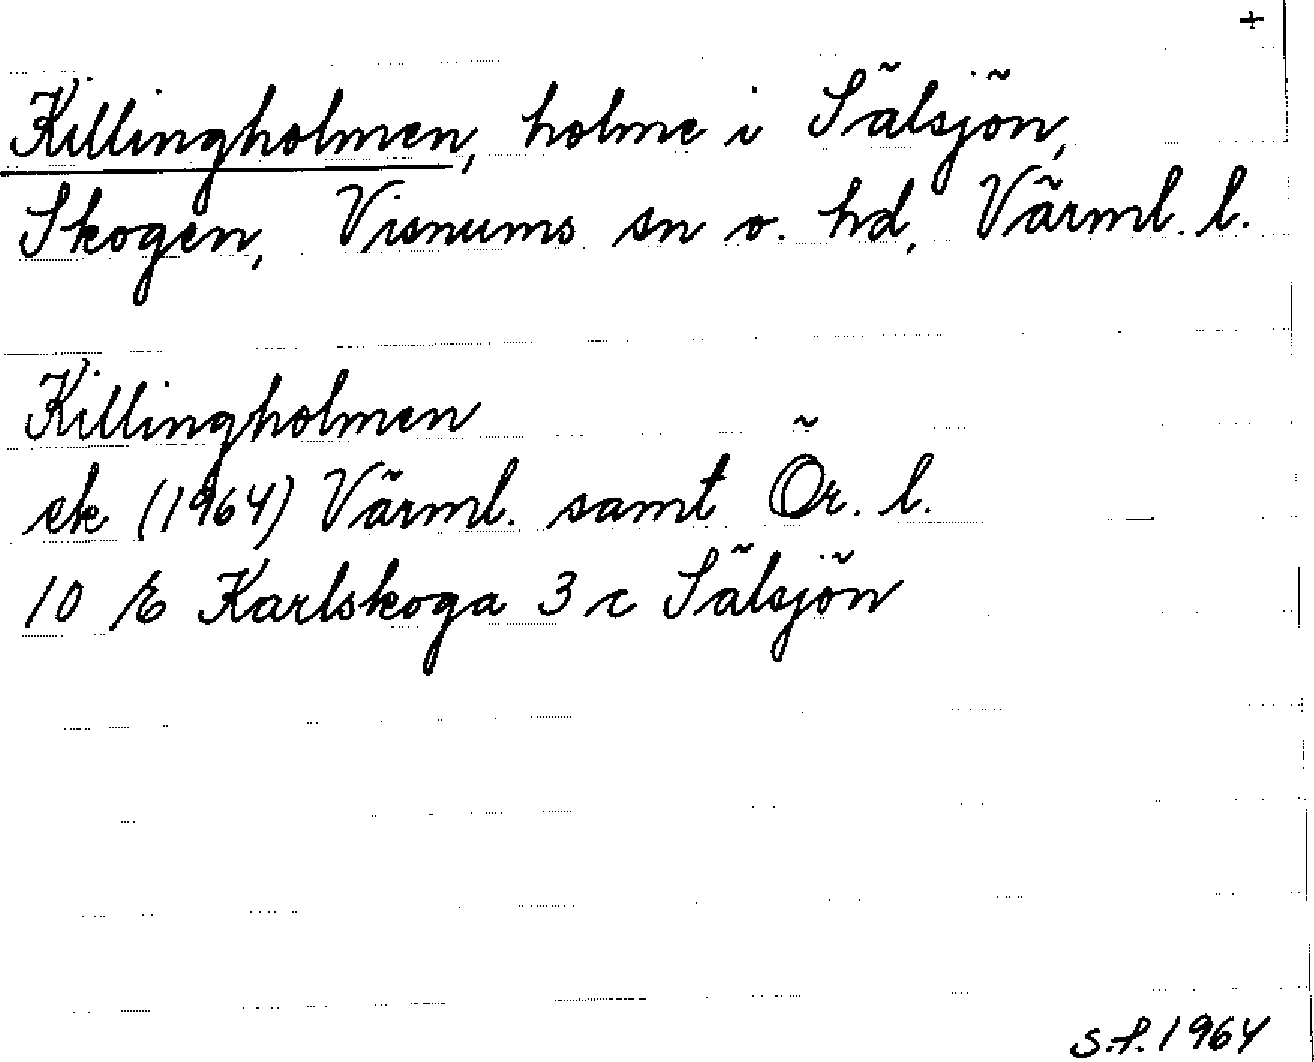 +
Killingholmen, holme i Sälsjön,
Skogen, Visnums sn o. hd, Värml. l.
Killingholmen
ek (1964) Värml. samt Ör. l.
10 E Karlskoga 3 c Sälsjön
S.f. 1964